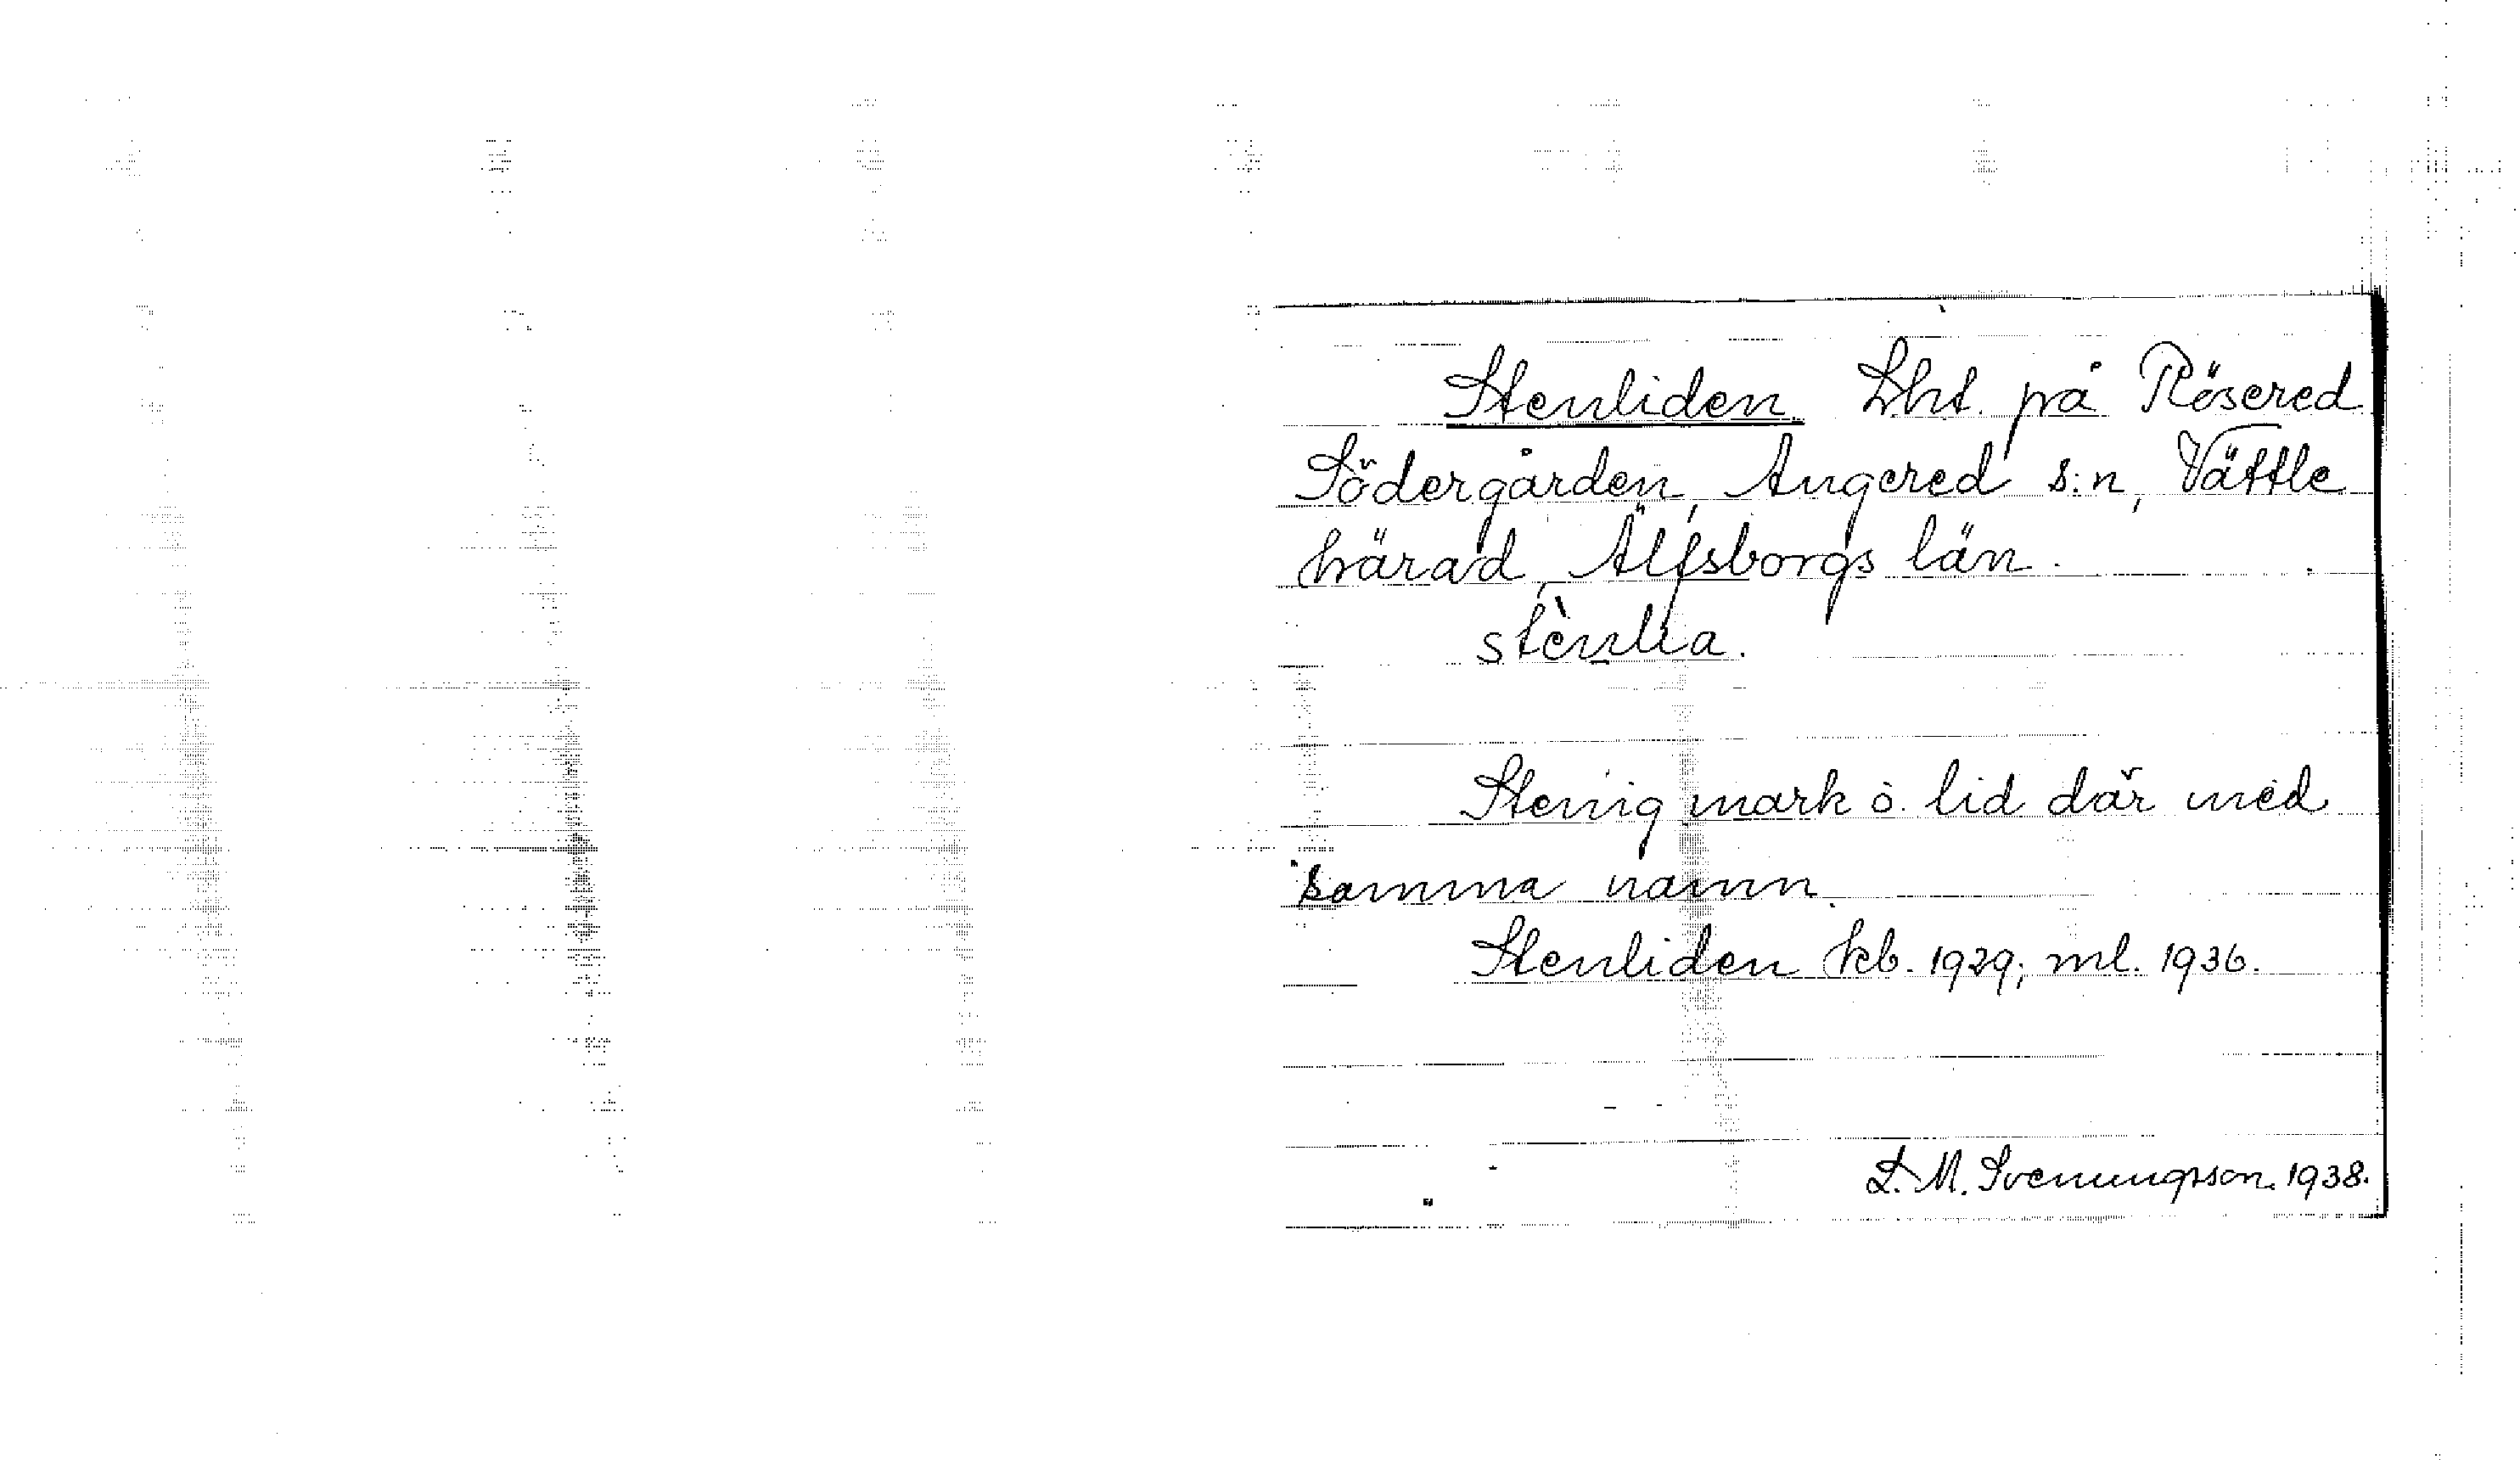 Stenliden. Lht. på Rösered
Södergården, Angered s:n, Vättle
härad, Älfsborgs län.
stènlia.
Stenig mark o. lid där med
samma namn.
Stenliden kb. 1929; ml. 1936.
L. M. Svenungsson. 1938.